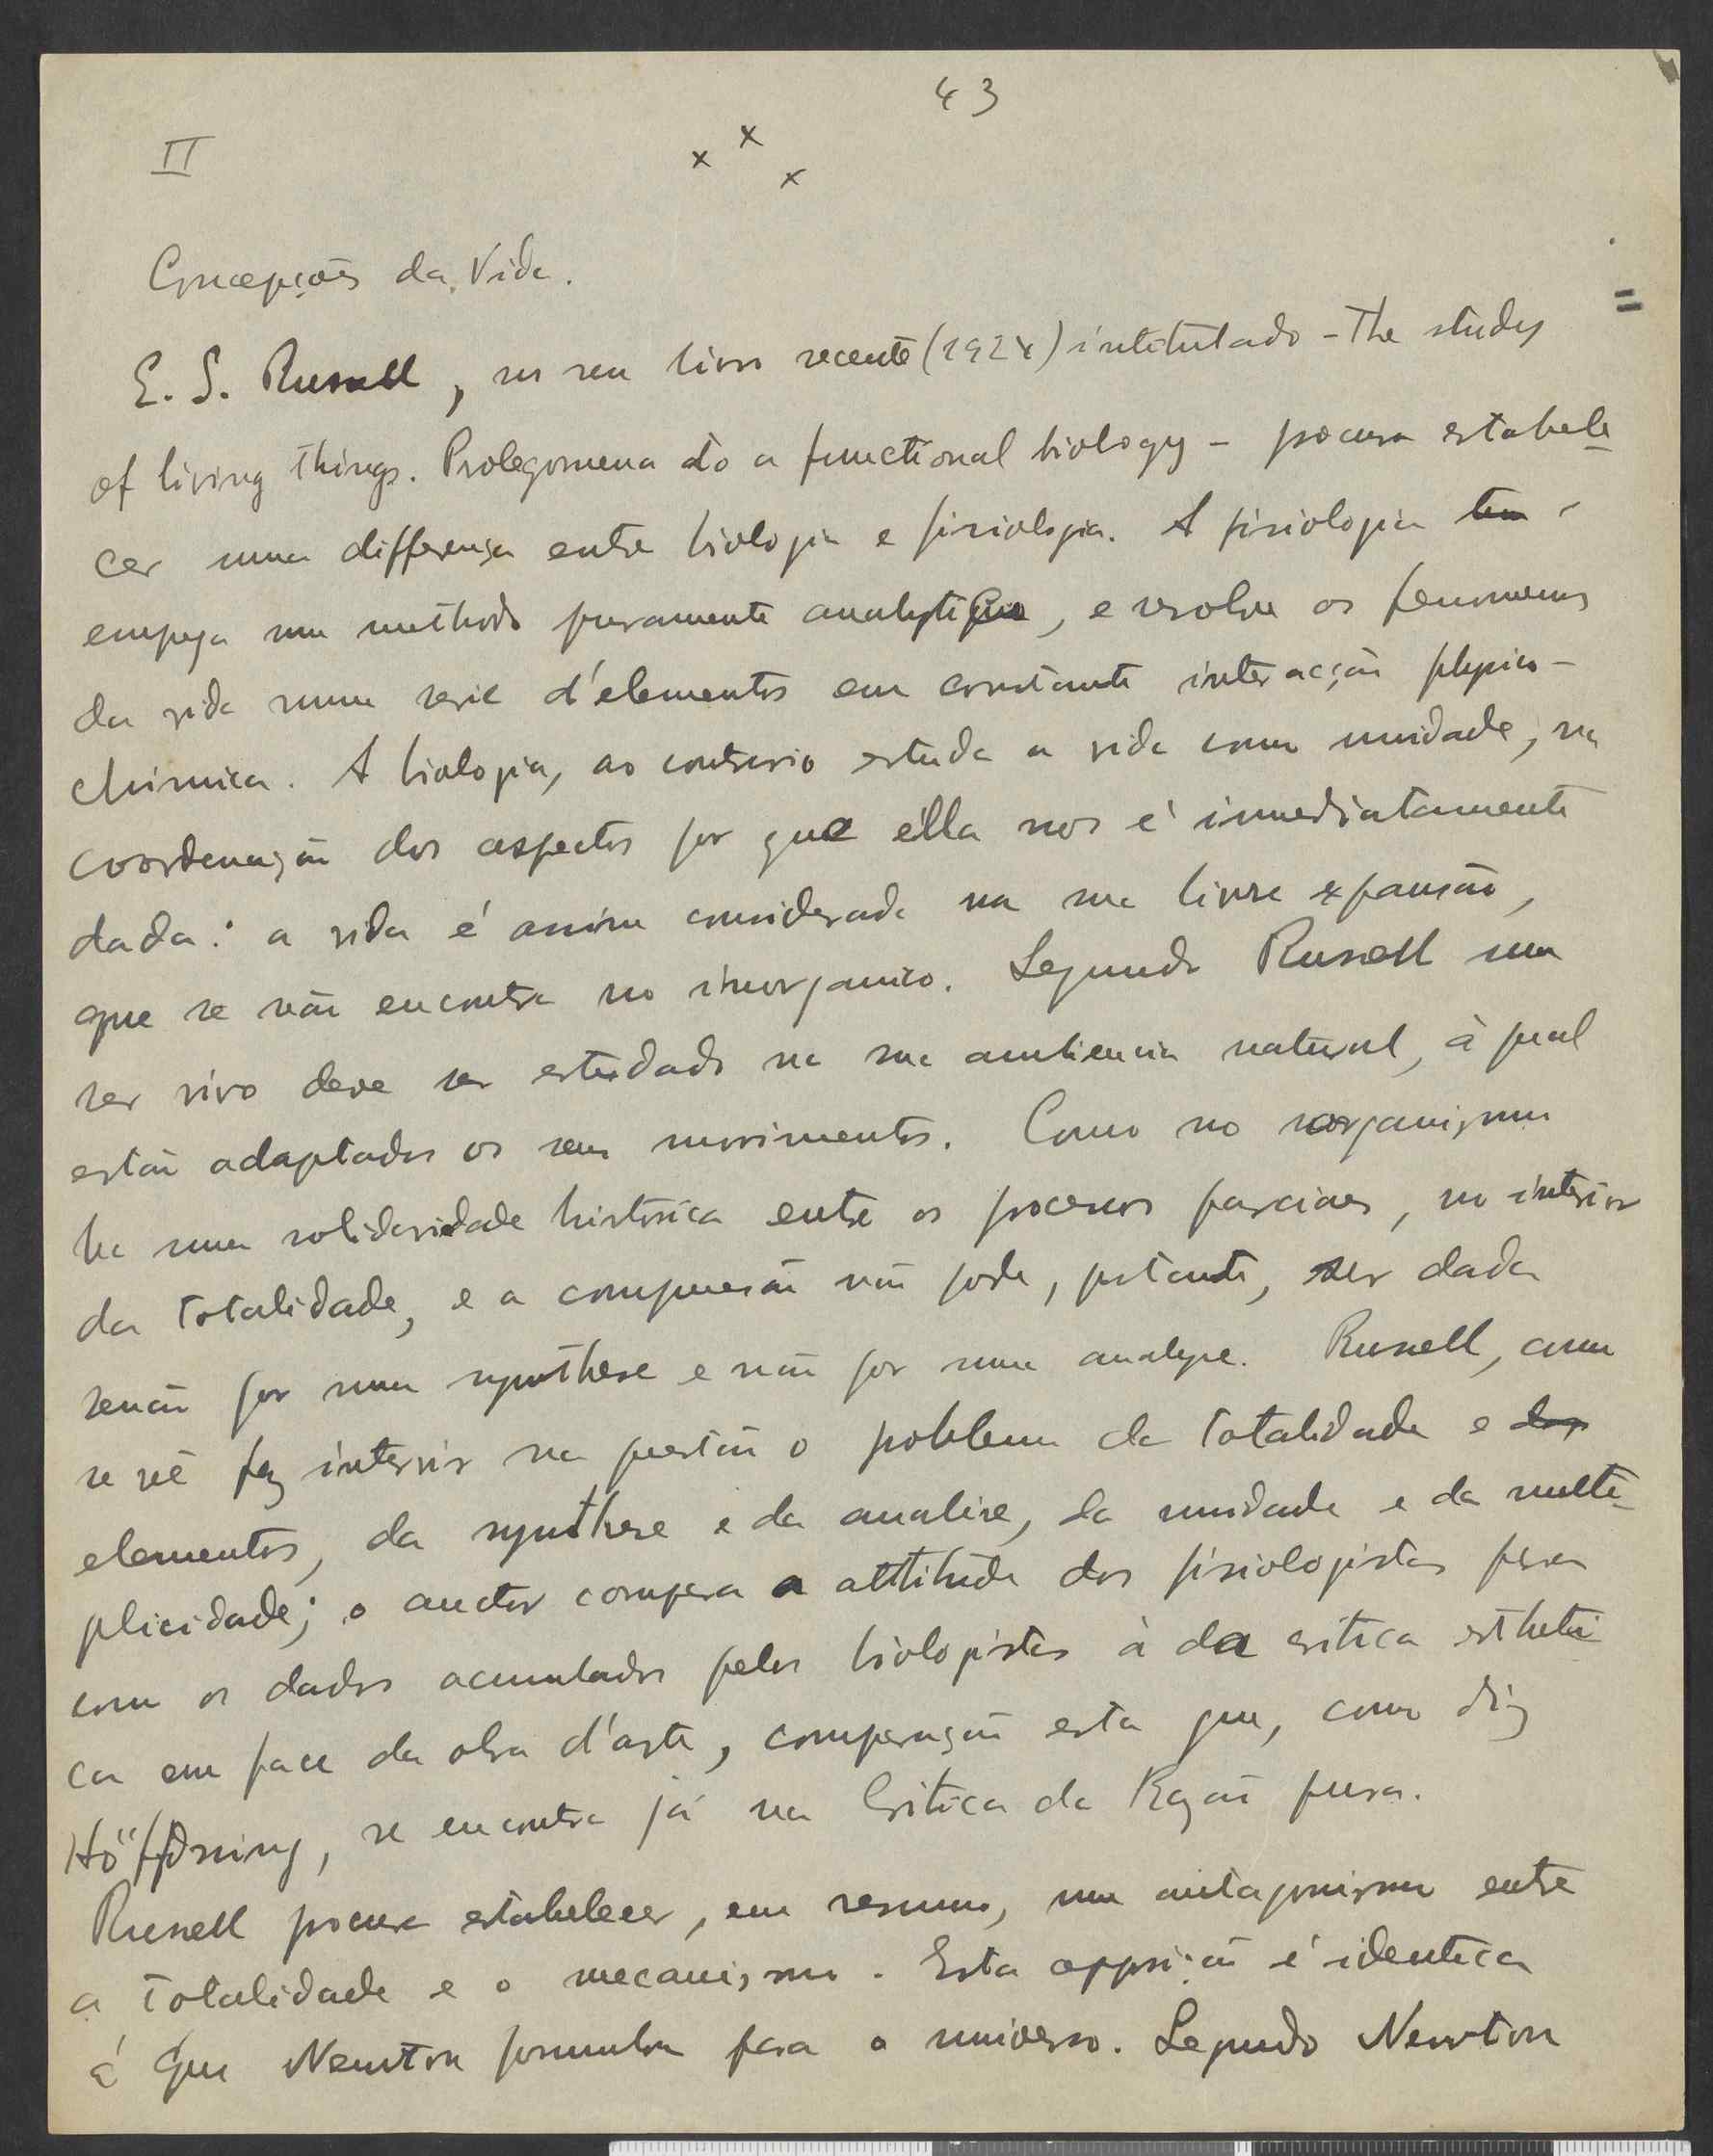 43
II
x x x
Concepções da Vida.
E. S. Russell, no seu livro recente (1924) intitulado - The study
of living things. Prolegomena to a functional biology - procura estabele
cer uma differença entre biologia e fisiologia. A fisiologia
emprega um methodo puramente analytico, e resolve os fenomenos
da vida numa serie d'elementos em constante interacção physico-
chimica. A biologia, ao contrario estuda a vida como unidade, na
coordenação dos aspectos por que ella nos é immediatamente
dada: a vida é assim considerada na sua livre expansão,
que se não encontra no inorganico. Segundo Russell um
ser vivo deve ser estudado na sua ambiencia natural, à qual
estão adaptados os seus movimentos. Como no organismo
ha uma solidariedade historica entre os processos parciaes, no interior
da totalidade, e a compreensão não pode, portanto, ser dada
senão por uma synthese e não por uma analyse. Russell, como
se vê faz intervir na questão o problema da totalidade e dos
elementos, da synthese e da analise, da unidade e da multi-
plicidade; o auctor compara a attitude dos fisiologistas para
com os dados acumulados pelos biologistas à da critica estheti
ca em face da obra d'arte, comparação esta que, como diz
Höffdning, se encontra já na Critica da Razão pura.
Russell procura estabelecer, em resumo, um antagonismo entre
a totalidade e o mecanismo. Esta opposição é identica
á que Newton formulou para o universo. Segundo Newton